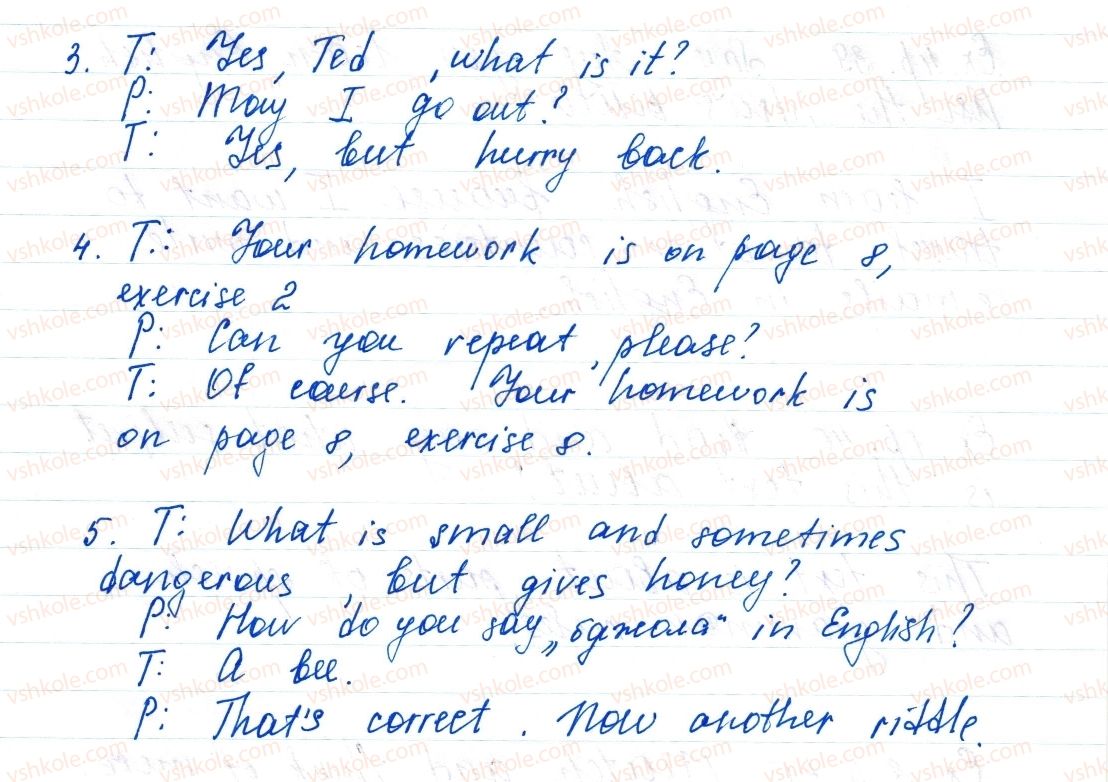 3. T: Yes, Ted, what is it?
P: May I go out?
T: Yes, but hurry back.
4. T.: Your homework is on page 8,
exercise 2
P: Can you repeat, please?
T: Of course. Your homework is
on page 8, exercise 8.
5. T: What is small and sometimes
dangerous, but gives honey?
P: How do you say „бджола" in English?
T: A bee.
P: That's correct. Now another riddle.